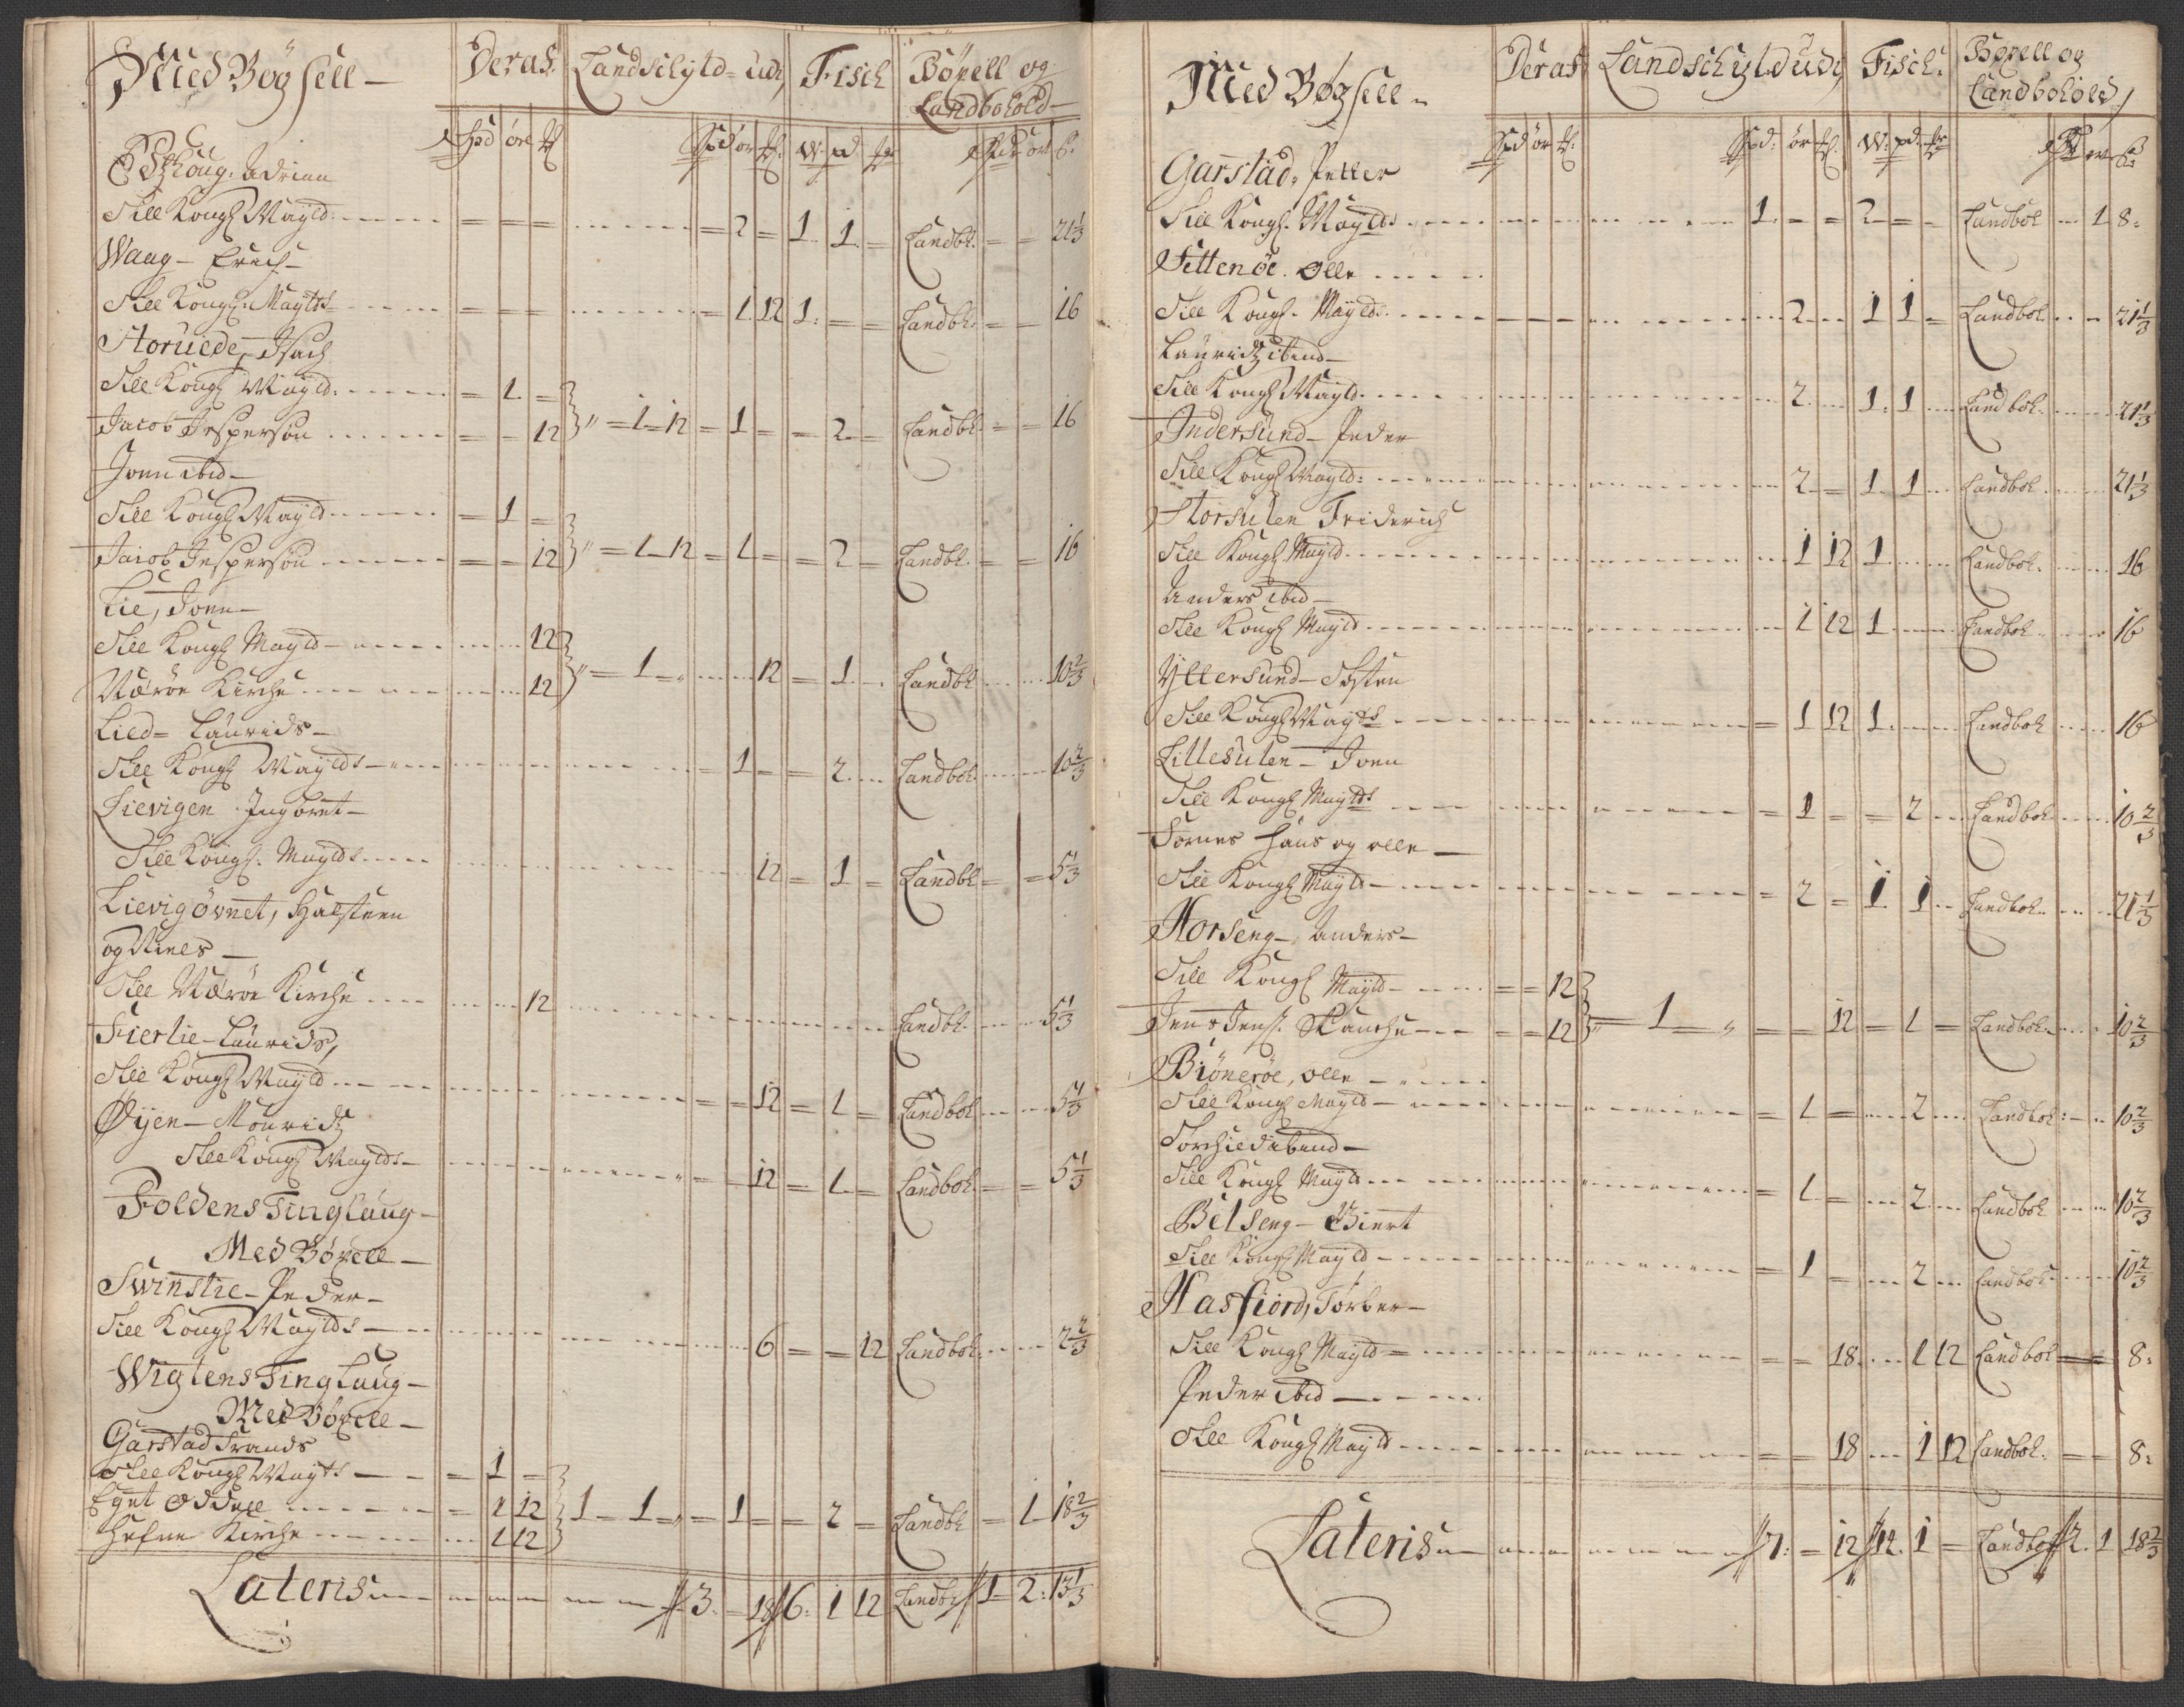 Med Bøgsell — Deras Landschyld udj Fisch Böxell og
Landbohold —
Spd öre Spd ör W: pd ör
Adrian
Till Kongl Mayld: 2 1 1 Landbh. 21 1/3
Waag — Erich —
Till Kongl: Maytts 1 12 1 Landbh. 16
Storuede, Isach
Till Kongl Mayld: 1
Jacob Jesperson 12 1 12 1 2 Landbh. 16
Joen ibid —
Till Kongl Mayld 1
Jacob Jesperson 12 1 12 1 2 Landbh. 16
Lie, Joen —
Till Kongl Mayld 12
Nærøe Kirche 12 1 12 1 Landbh. 10 2/3
Lied = Laurids —
Till Kongl Maylds 1 2 Landboh. 10 2/3
Lievigen Ingbret —
Till Kongl. Maylds 12 1 Landbh 5 1/3
Lievigövnet, Halsteen
og Niels —
Till Nærøe Kirche 12 Landbh. 5 1/3
Fierlie — Laurids,
Till Kongl Mayld 12 1 Landboh 5 1/3
Øyen — Mouridz
Till Kongl Maylds — 12 1 Landboh. 5 1/3
Foldens Tinglaug —
Med Böxell —
Swinslie — Peder —
Till Kongl Maylds — 6 12 Landboh. 2 2/3
Wigtens Tinglaug —
Med Böxell —
Garstad Frands
Till Kongl Maytts 1
Eget Oddell 1 12 1 1 1 2 Landbh 1 18 2/3
Hefne Kirche 1 12
Lateris 3. 18 6: 1 12 Landbh 1 2: 13 1/3
Med Bøgsell Deras Landschyld udj Fisch: Boxell og
Landbohold
Spd ör Spd: ör W: pd.
Garstad, Petter
Till Kongl. Maylds 1 2 Landboh 1 8:
Settenøe. Olle
Till Kongl. Maylds 2 1 1 Landboh 21 1/3
Lauridz ibend —
Till Kongl Mayld 2 1 1 Landboh. 21 1/3
Indersund — Peder
Till Kongl Mayld: 2 1 1 Landboh 21 1/3
Storsulen Friderich
Till Kongl Mayld 1 12 1 Landboh. 16
Anders ibid —
Till Kongl Mayld 1 12 1 Landboh 16
Yttersund — Tosten
Till Kongl Maytts 1 12 1 Landboh 16
Lillesulen — Joen
Till Kongl Maytts 1 2 Landboh. 10 2/3
Fornes Hans og olle —
Till Kongl Mayld 2 1 1 Landboh. 21 1/3
Horseng — Anders —
Till Kongl Mayld — 12
Jens Jens: Skanche 12 1 12 1 Landboh. 10 2/3
Biönerøe, olle
Till Kongl Mayld 1 2 Landboh: 10 2/3
Torchied ibend —
Till Kongl Mayld 1 2 Landboh 10 2/3
Belseng —
Till Kongl Mayld 1 2 Landboh 10 2/3
Hasfiord, Torber —
Till Kongl Mayld 18 1 12 Landboh 8:
Peder ibid —
Till Kongl Mayld 18 1 12 Landboh. 8:
Lateris 7: 12 12. 1 Landboh 2. 1 18 2/3